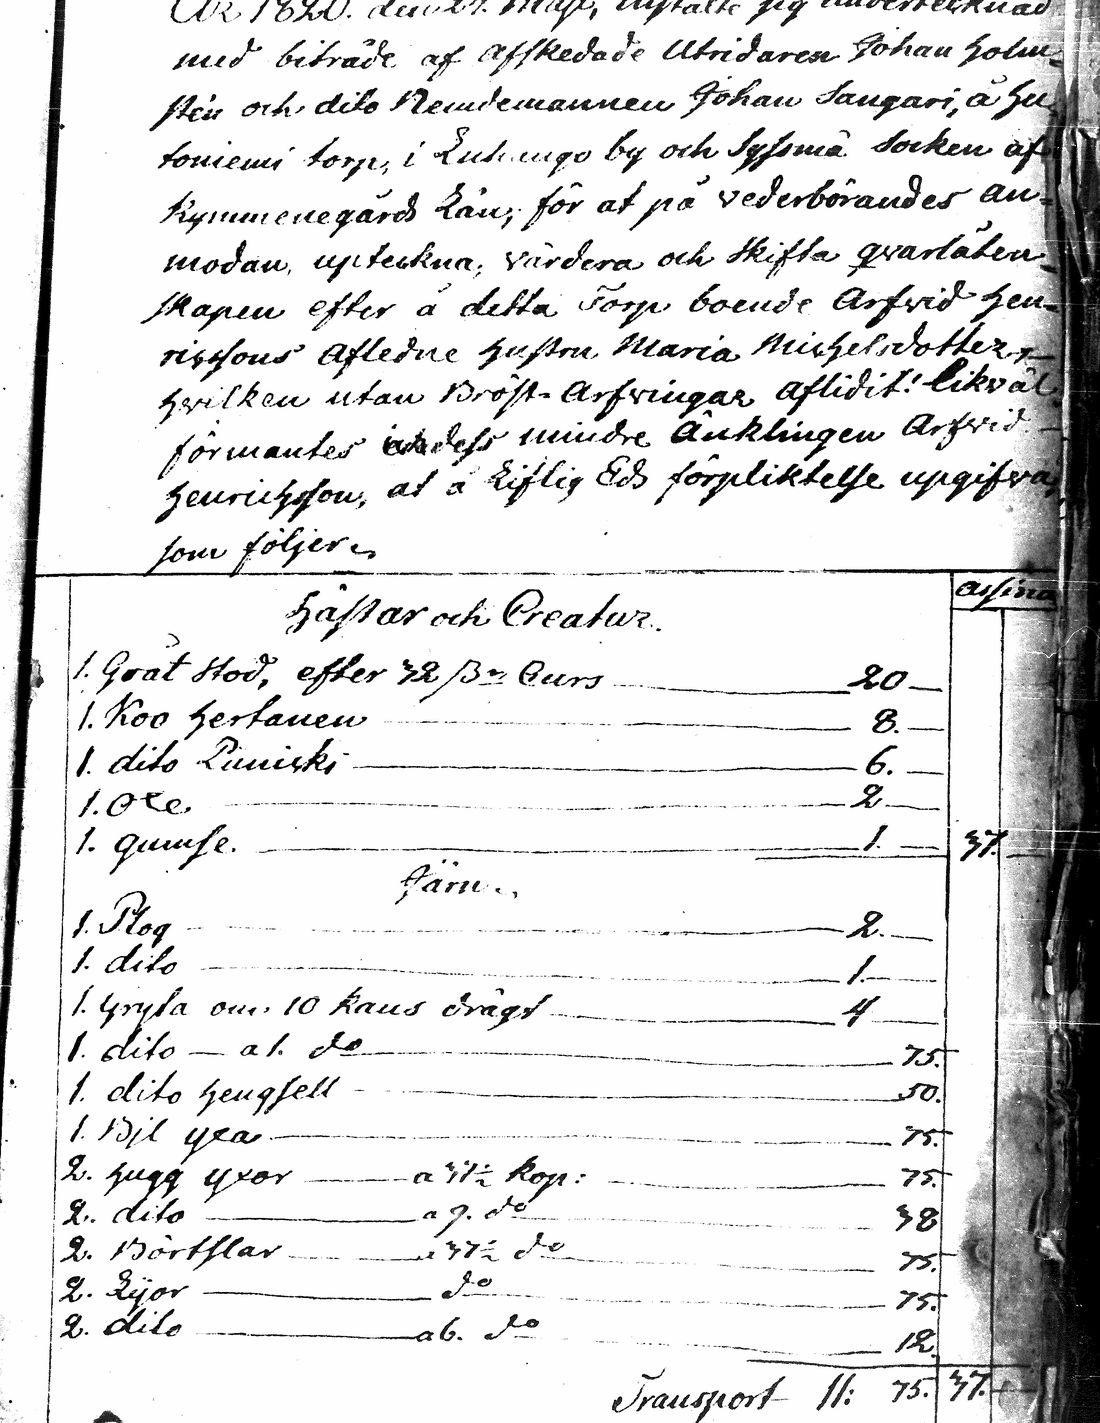 År 1820. den 27. Maji, instälte sig undertecknad
med biträde af Afskedade Utridaren Johan Holm-
stén och dito Nemdemannen Johan Sangari, å Hu
toniemi torp, i by och Syssmä Socken af
Kymmenegårds Län, för at på vederbörandes an-
modan, upteckna, värdera och skifta qvarlåten-
skapen efter å detta Torp boende Arfwid Hen-
richsons Afledne Hustru Maria Michelsdotter,
hvilken utan Bröst-Arfvingar Aflidit! likväl
förmantes dess mindre Änklingen Arfvid
Henrichsson, at å Liflig Eds förpliktelse upgifva,
som följer
Assina
Hästar och Creatur.
1. Gråt Stod, efter 42 Curs 20
1. Koo Hertanen 8.
1. dito Punicki 6.
1. Oxe 2
1. Gumse. 1. 37.
Järn.
1. Plog 2.
1. dito 1.
1. Gryta om 10 kans drägt 4
1. dito a 1. do 75.
1. dito Hengsell 50.
1. Bjl yxa 75.
2. Hugg yxor a 37½ kop: 75.
2. dito a 9. do 38
2. a 37½ do 75.
2. Lijor do 75.
2. dito a 6. do 12.
Transport 11: 75. 37.